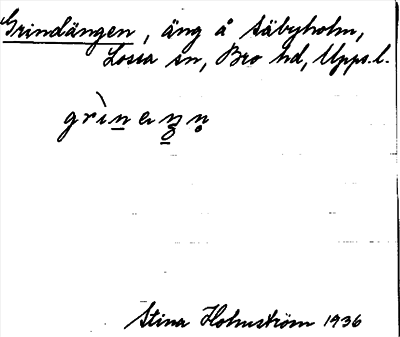 Grindängen, äng å Säbyholm,
Lossa sn, Bro hd, Upps.l.
Stina Holmström 1936